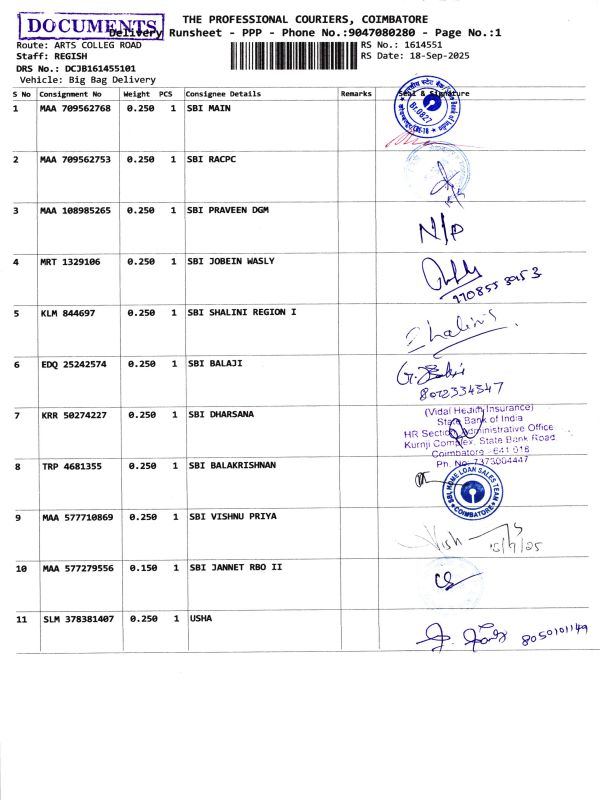 DOCUMENTS
THE PROFESSIONAL COURIERS, COIMBATORE
Delivery Runsheet - PPP - Phone No.:9047080280 - Page No.:1
Route: ARTS COLLEG ROAD RS No.: 1614551
Staff: REGISH RS Date: 18-Sep-2025
DRS No.: DCJB161455101
Vehicle: Big Bag Delivery
S No Consignment No Weight PCS Consignee Details Remarks Seal & Signature
1 MAA 709562768 0.250 1 SBI MAIN
Br.0827
2 MAA 709562753 0.250 1 SBI RACPC
3 MAA 108985265 0.250 1 SBI PRAVEEN DGM N/P
4 MRT 1329106 0.250 1 SBI JOBEIN WASLY
5 KLM 844697 0.250 1 SBI SHALINI REGION I Shalini.S
6 EDQ 25242574 0.250 1 SBI BALAJI
8012334347
7 KRR 50274227 0.250 1 SBI DHARSANA
(Vidal Health Insurance)
State Bank of India
HR Section, Administrative Office
Kurnji Complex, State Bank Road
Coimbatore - 641 018
Ph. No. 7373004447
8 TRP 4681355 0.250 1 SBI BALAKRISHNAN
SBI, HOME LOAN SALES TEAM
COIMBATORE
9 MAA 577710869 0.250 1 SBI VISHNU PRIYA
Vish
10 MAA 577279556 0.150 1 SBI JANNET RBO II
11 SLM 378381407 0.250 1 USHA
8050101149